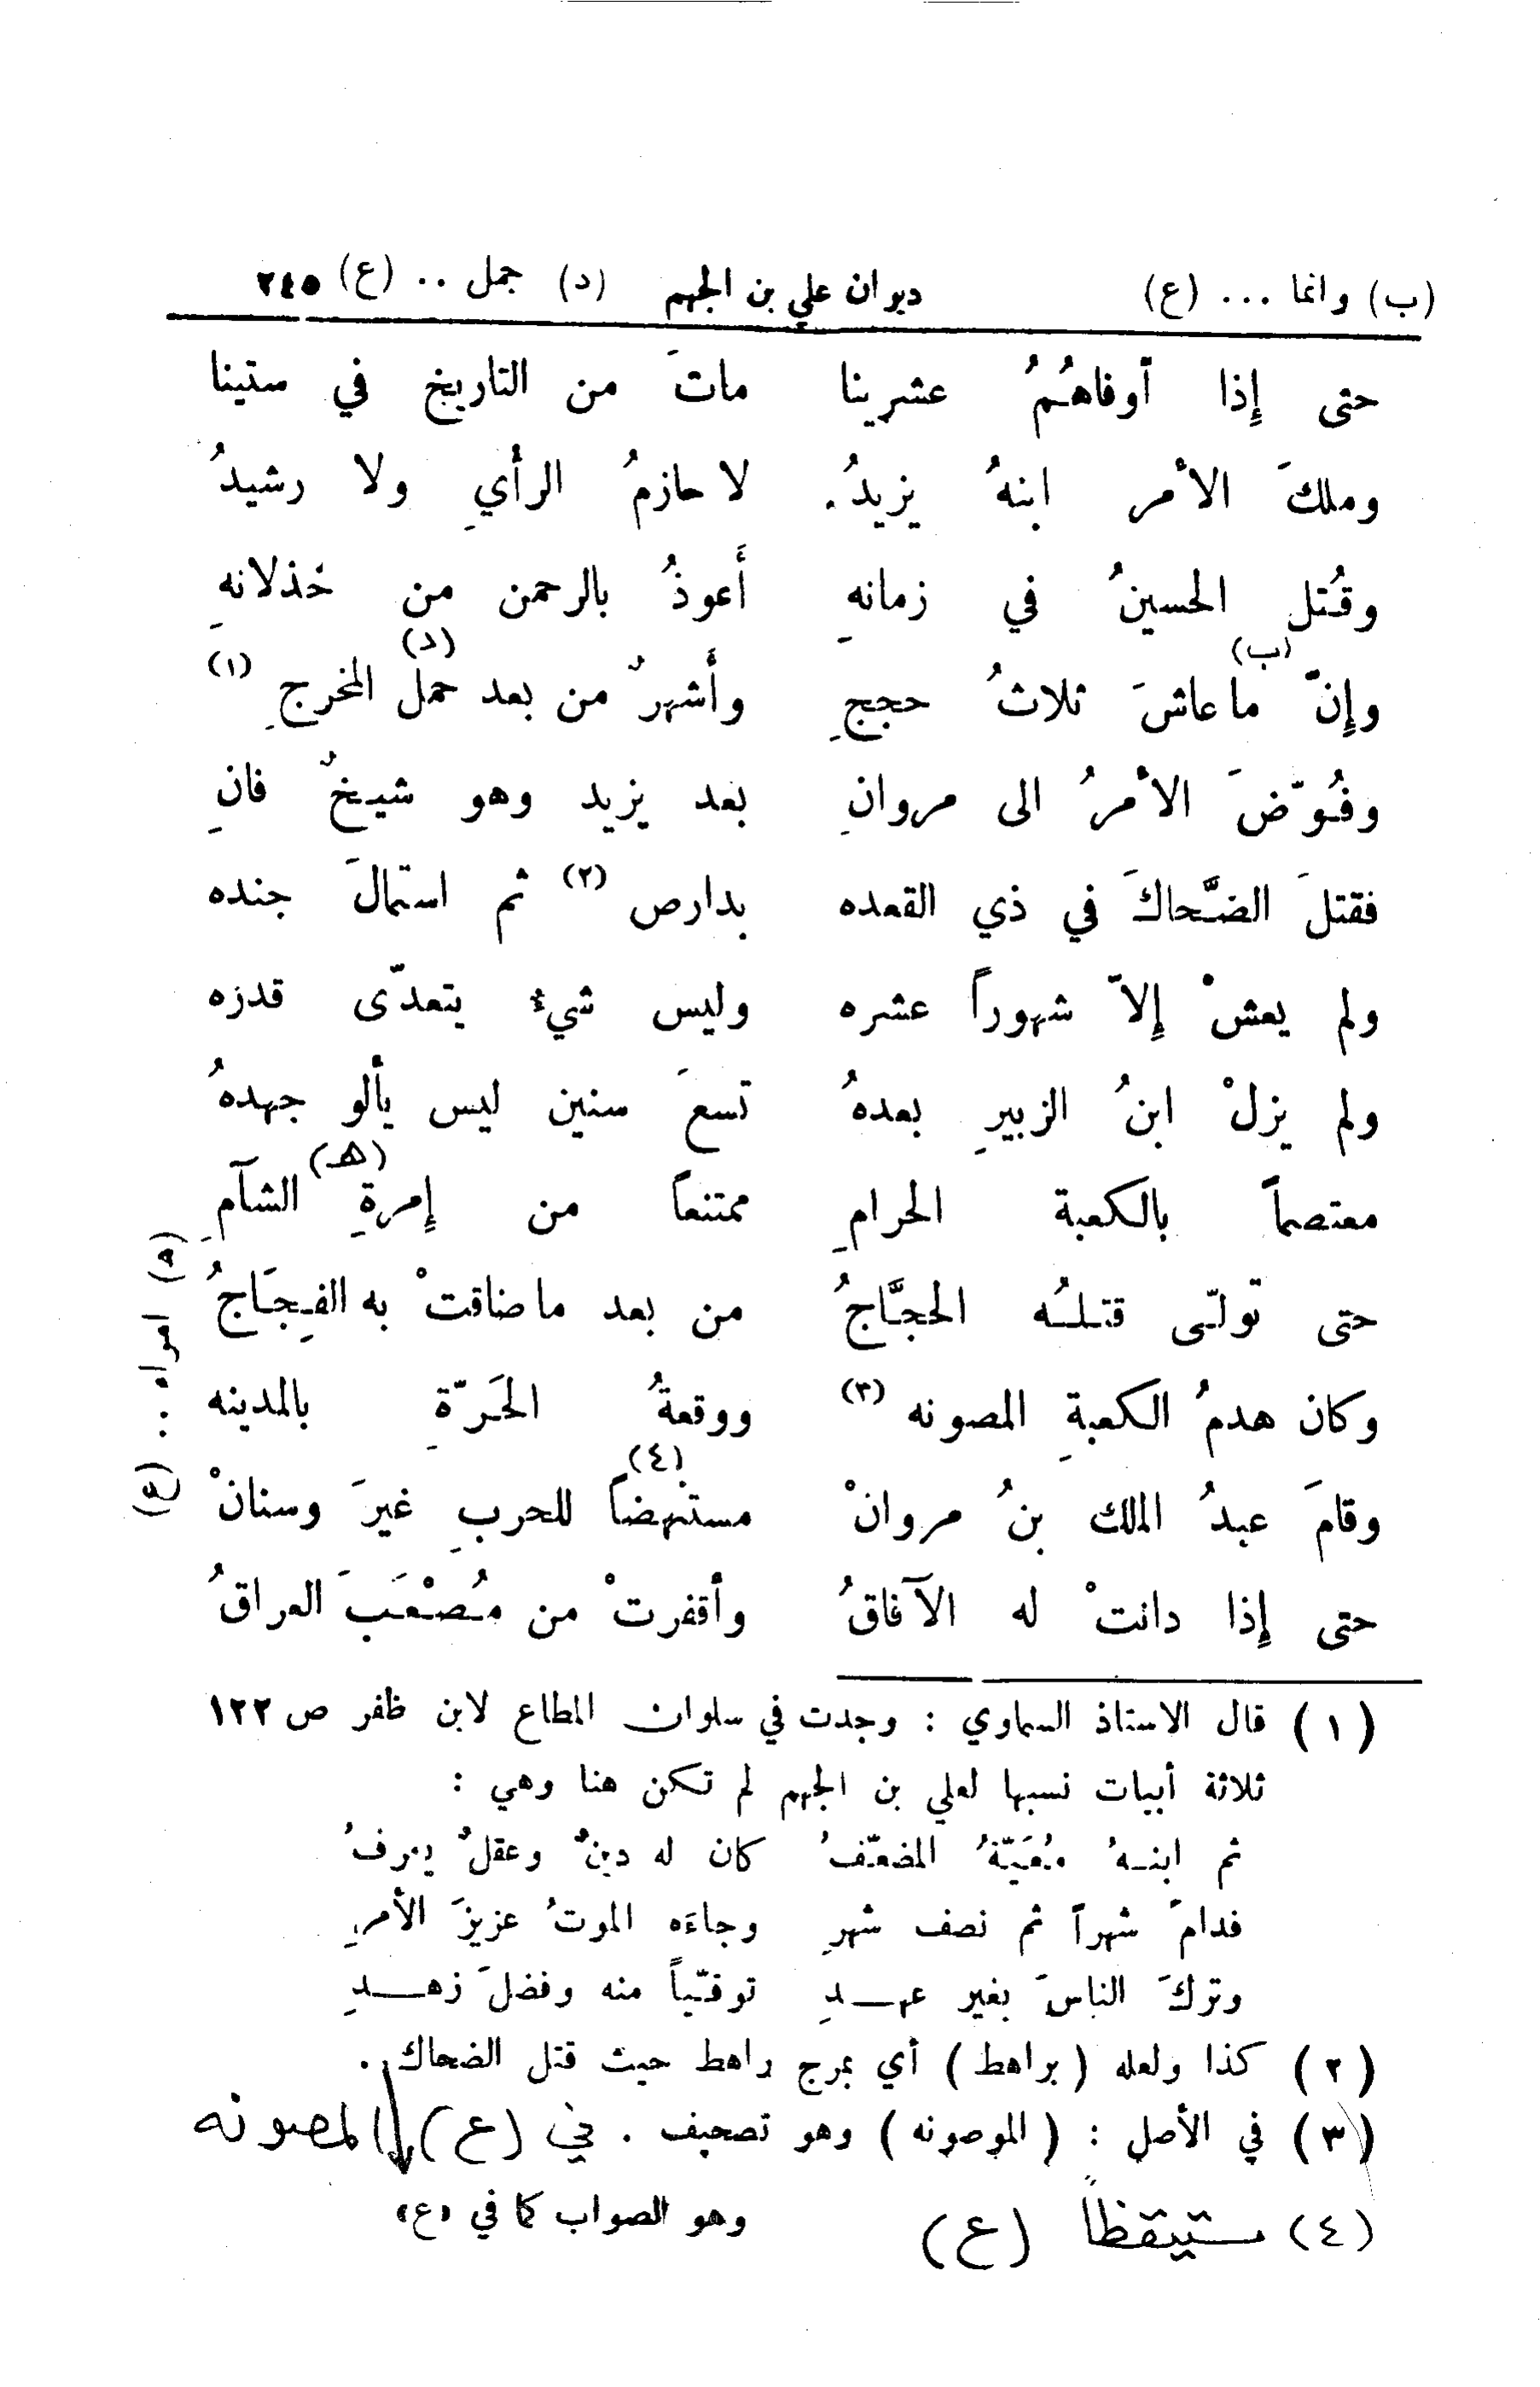 (ب) وانما ... (ع) ديوان علي بن الجهم (د) جمل .. (ع) ٢٤٥
حتى إِذا أوفاهُمُ عشرينا ماتَ من التاريخ في ستينا
وملكَ الأمر ابنهُ يزيدُ. لا حازمُ الرأيِ ولا رشيدُ
وقُتل الحسينُ في زمانهِ أَعوذُ بالرحمن من خذلانهِ
وإِنّ (ب) ما عاشَ ثلاثُ حججِ وأَشهرٌ من بعد حمل (د) المخرجِ (١)
وفُوّضَ الأمرُ الى مروانِ بعد يزيد وهو شيخٌ فانِ
فقتلَ الضَّحاكَ في ذي القعده بدارص (٢) ثم استمالَ جنده
ولم يعشْ إِلاّ شهوراً عشره وليس شيءٌ يتعدّى قدره
ولم يزلْ ابنُ الزبيرِ بعدهُ تسعَ سنين ليس يألو جهدهُ
معتصماً بالكعبة الحرامِ ممتنعاً من إِمرةِ (هـ) الشآمِ
حتى تولّى قتلُه الحجَّاجُ من بعد ما ضاقتْ به الفِجَاجُ
وكان هدمُ الكعبةِ المصونه (٣) ووقعةُ الحَرّةِ بالمدينه
وقامَ عبدُ الملك بنُ مروانْ مستنهضاً (٤) للحربِ غيرَ وسنانْ
حتى إِذا دانتْ له الآفاقُ وأقفرتْ من مُصْعَبَ العراقُ
(١) قال الاستاذ السماوي : وجدت في سلوان المطاع لابن ظفر ص ١٢٢
ثلاثة أبيات نسبها لعلي بن الجهم لم تكن هنا وهي :
ثم ابنهُ المضعّفُ كان له دينٌ وعقلٌ يعرفُ
فدامَ شهراً ثم نصف شهرِ وجاءَه الموتُ عزيزَ الأمرِ
وتركَ الناسَ بغير عهدِ توقّياً منه وفضلَ زهدِ
(٢) كذا ولعله (براهط) أي بمرج راهط حيث قتل الضحاك.
(٣) في الأصل : (الموصونه) وهو تصحيف . في (ع) المصونه
وهو الصواب كما في «ع»
(٤) ستيقظاً (ع)
(هـ)